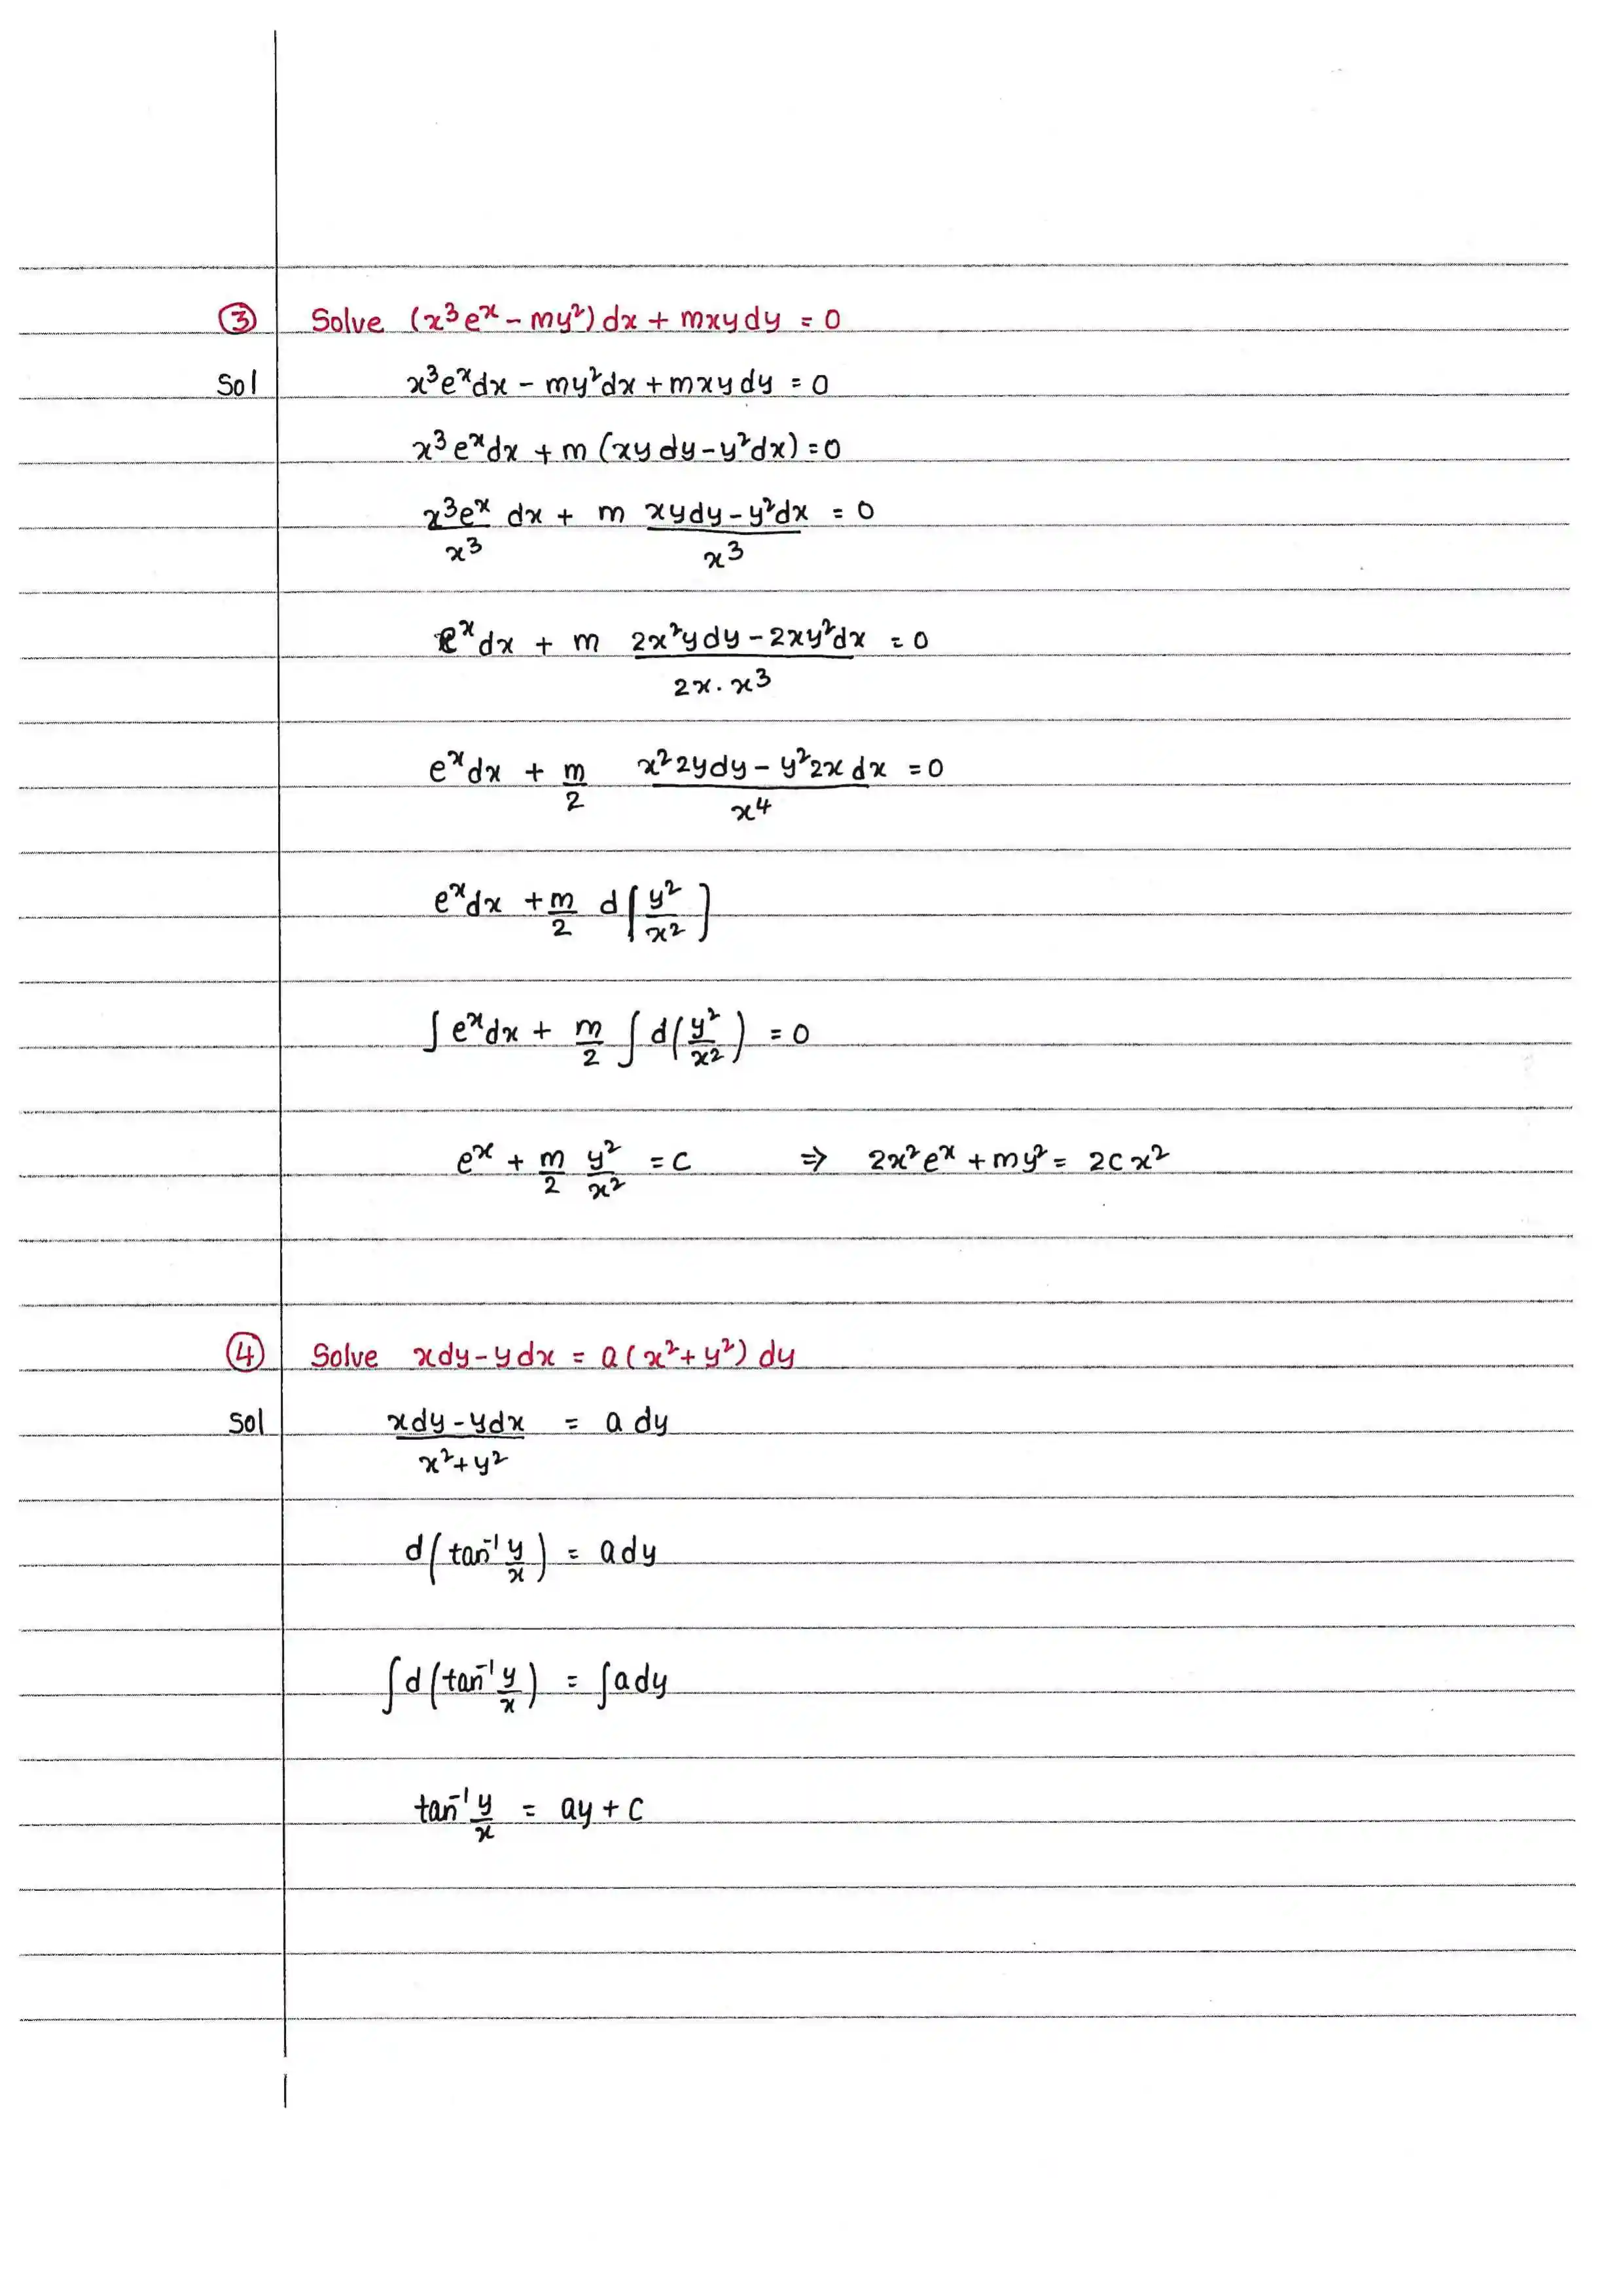 ③ Solve (x³eˣ - my²) dx + mxy dy = 0
Sol x³eˣdx - my²dx + mxy dy = 0
x³eˣdx + m (xy dy - y²dx) = 0
x³eˣ/x³ dx + m (xydy - y²dx)/x³ = 0
eˣdx + m (2x²ydy - 2xy²dx)/(2x·x³) = 0
eˣdx + m/2 (x²2ydy - y²2x dx)/x⁴ = 0
eˣdx + m/2 d[y²/x²]
∫eˣdx + m/2 ∫d(y²/x²) = 0
eˣ + m/2 y²/x² = c ⇒ 2x²eˣ + my² = 2cx²
④ Solve xdy - ydx = a(x² + y²) dy
Sol (xdy - ydx)/(x² + y²) = a dy
d(tan⁻¹ y/x) = ady
∫d(tan⁻¹ y/x) = ∫ady
tan⁻¹ y/x = ay + c